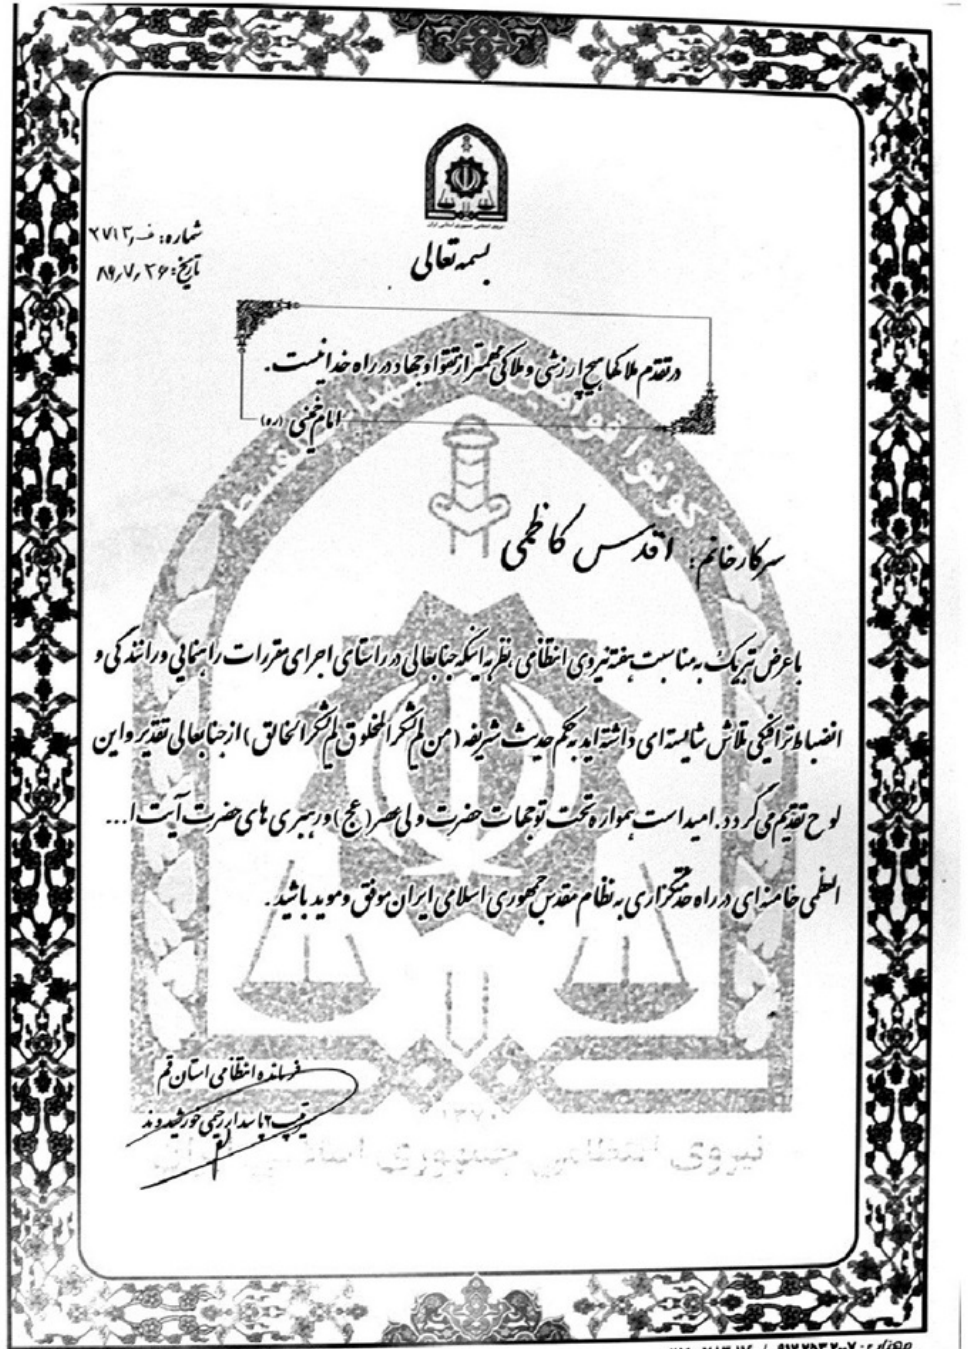 نیروی انتظامی جمهوری اسلامی ایران
بسمه تعالی
شماره: ف ر ۲۷۱۳
تاریخ: ۸۹٫۷٫۲۶
در تقدم ملاکها هیچ ارزشی و ملاکی مهمتر از تقوا و جهاد در راه خدا نیست.
امام خمینی (ره)
سرکار خانم: اقدس کاظمی
با عرض تبریک به مناسبت هفته نیروی انتظامی نظر به اینکه جنابعالی در راستای اجرای مقررات راهنمایی و رانندگی و
انضباط ترافیکی تلاش شایسته ای داشته اید به حکم حدیث شریفه (من لم یشکر المخلوق لم یشکر الخالق) از جنابعالی تقدیر و این
لوح تقدیم می گردد. امید است همواره تحت توجهات حضرت ولی عصر (عج) و رهبری های حضرت آیت ا...
العظمی خامنه ای در راه خدمتگزاری به نظام مقدس جمهوری اسلامی ایران موفق و موید باشید.
فرمانده انتظامی استان قم
سرتیپ ۲ پاسدار رحیمی خورشیدوند
۱۳۷۰
نیروی انتظامی جمهوری اسلامی ایران